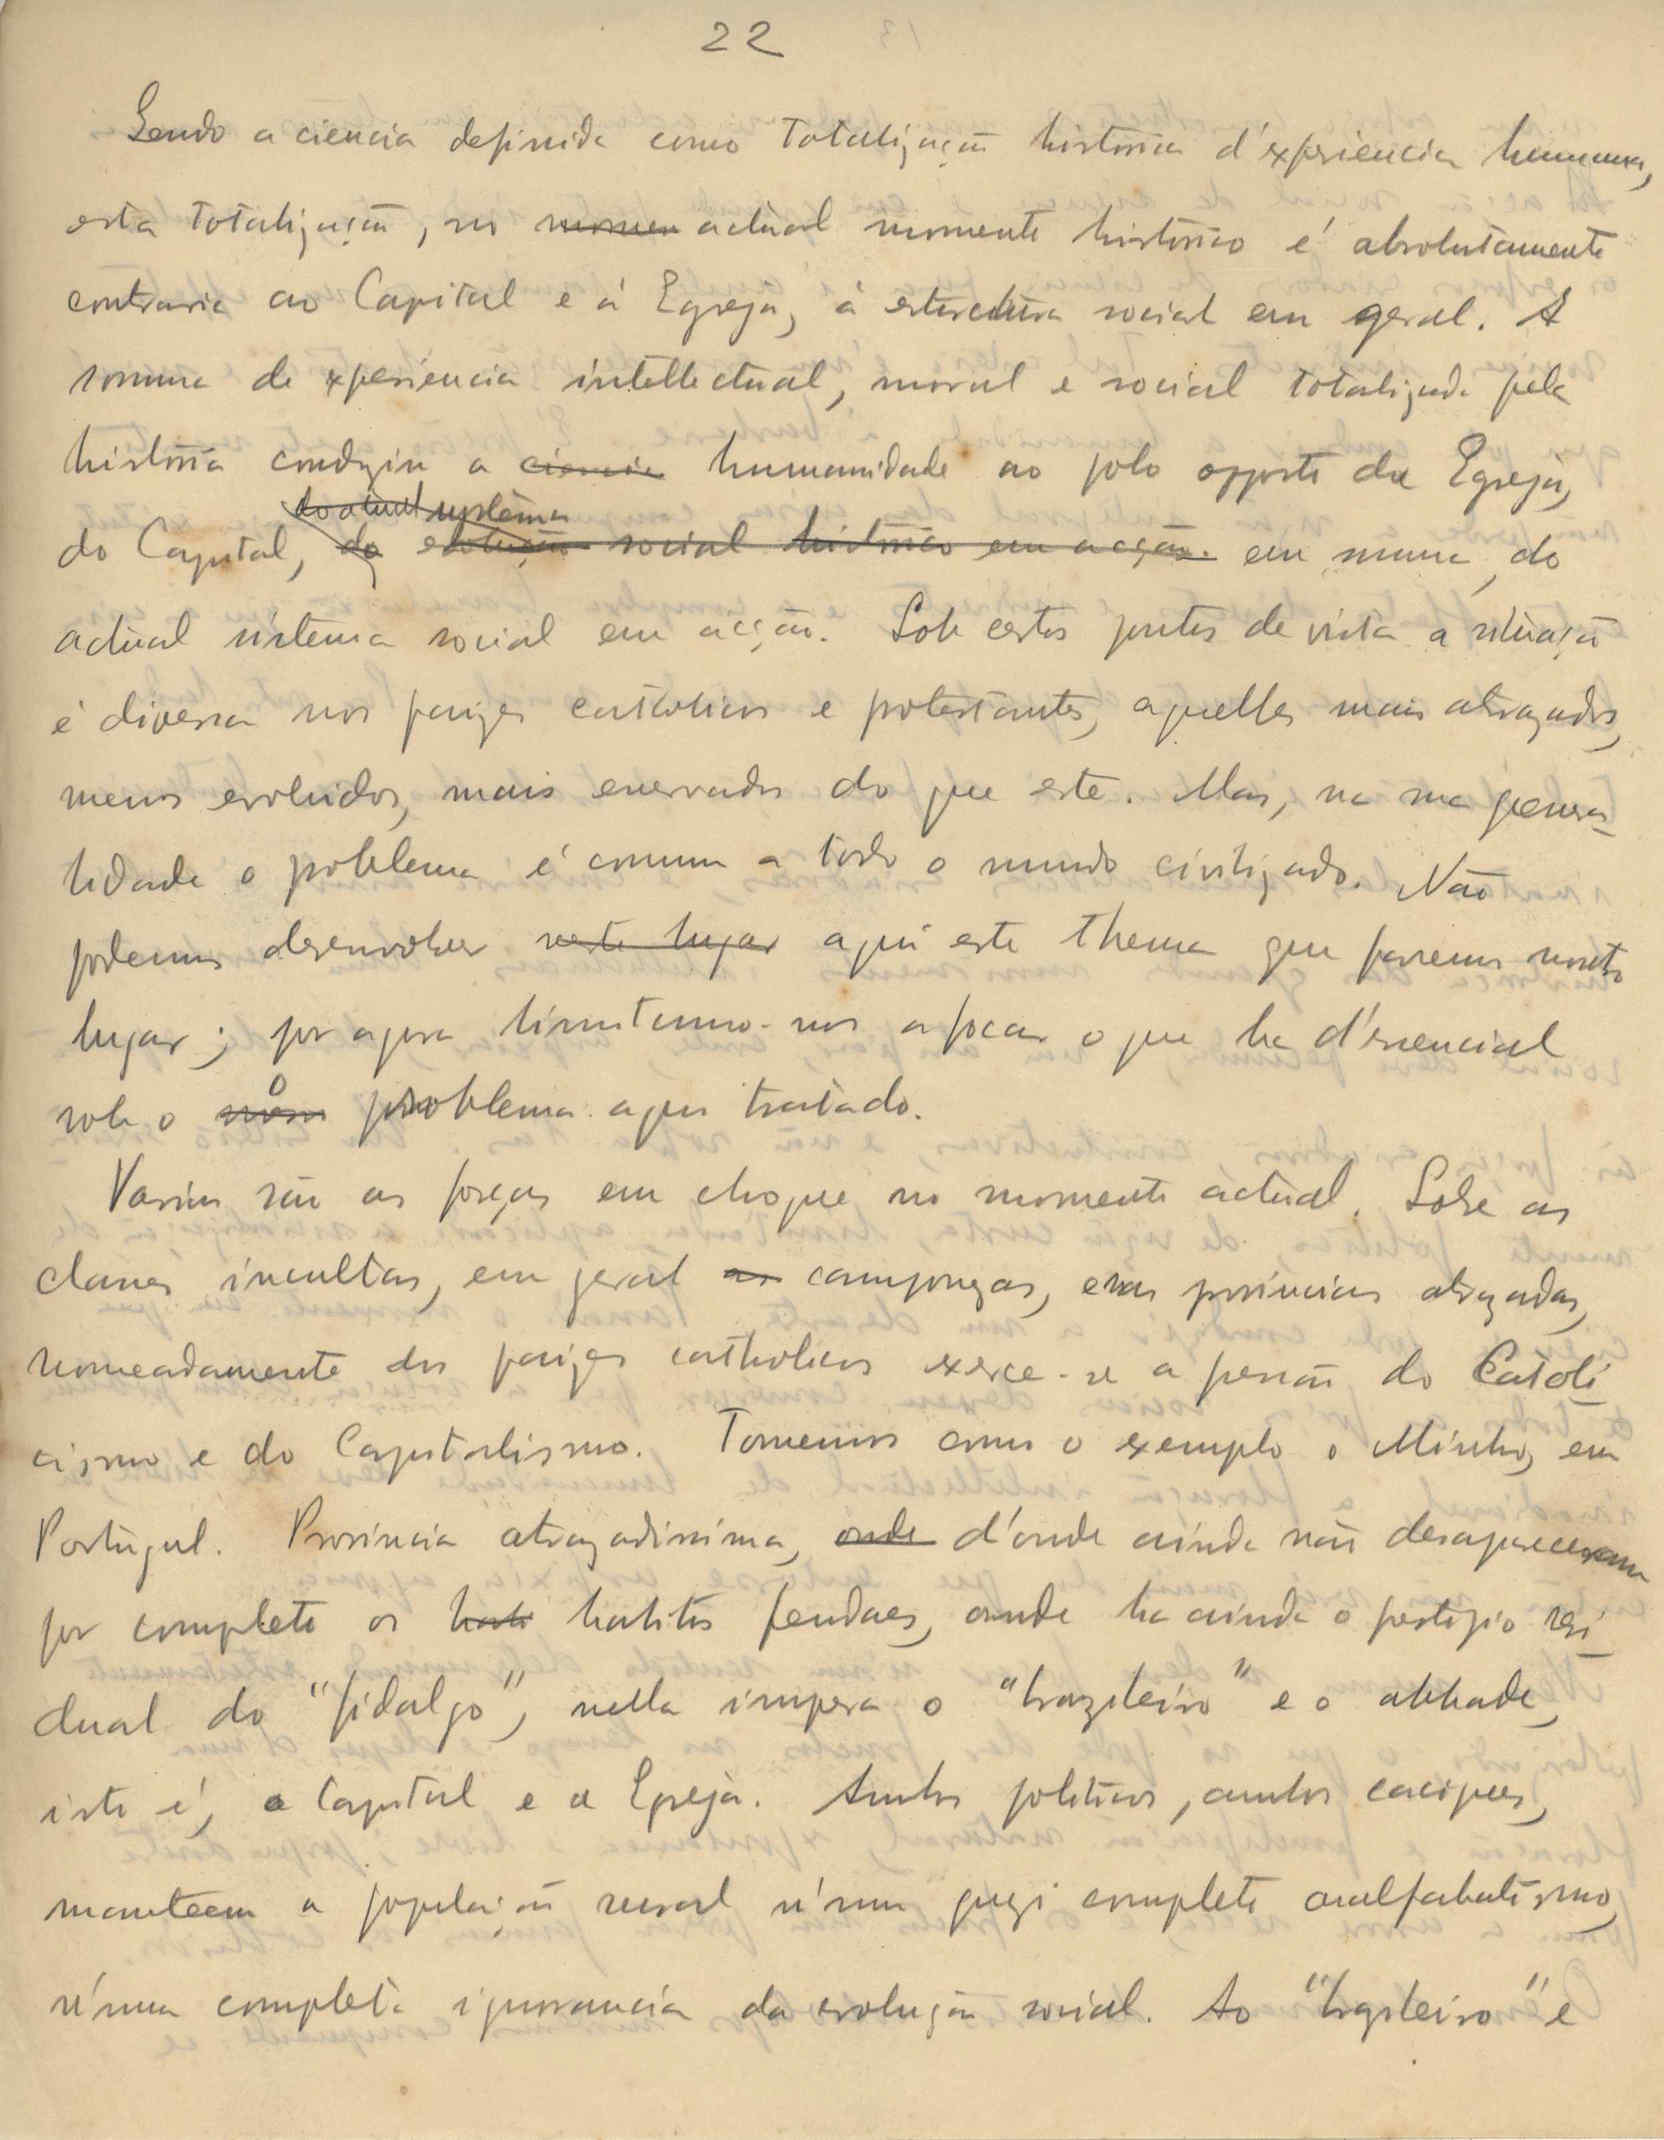 22
Sendo a ciencia definida como totalização historica d'experiencia humana,
esta totalização, no momen actual momento historico é absolutamente
contraria ao Capital e á Egreja, á estructura social em geral. A
somma de experiencia intellectual, moral e social totalizada pela
historia conduziu a ciencia humanidade ao polo opposto da Egreja,
do atual systema
do Capital, do evolução social historico em acção. em summa, do
actual sistema social em acção. Sob certos pontos de vista a situação
é diversa nos paizes catholicos e protestantes, aquelles mais atrazados,
menos evoluidos, mais enervados do que este. Mas, na sua genera-
lidade o problema é comum a todo o mundo civilizado. Não
podemos desenvolver neste lugar aqui este thema que faremos noutro
lugar; por agora limitamo-nos a focar o que ha d'esencial
sob o nosso problema aqui tratado.
Varias são as forças em choque no momento actual. Sobre as
classes incultas, em geral as camponezas, e nas provincias atrazadas,
nomeadamente dos paizes catholicos exerce-se a pressão do Catoli
cismo e do Capitalismo. Tomemos como o exemplo o Minho, em
Portugal. Provincia atrazadissima, onde d'onde ainda não desapareceram
por completo os hab habitos feudaes, onde ha ainda o prestigio resi-
dual do "fidalgo", nella impera o "brazileiro" e o abbade,
isto é, o Capital e a Egreja. Ambos politicos, ambos caciques,
manteem a população rural n'um quazi completo analfabetismo,
n'uma completa ignorancia da evolução social. Ao "brazileiro" e